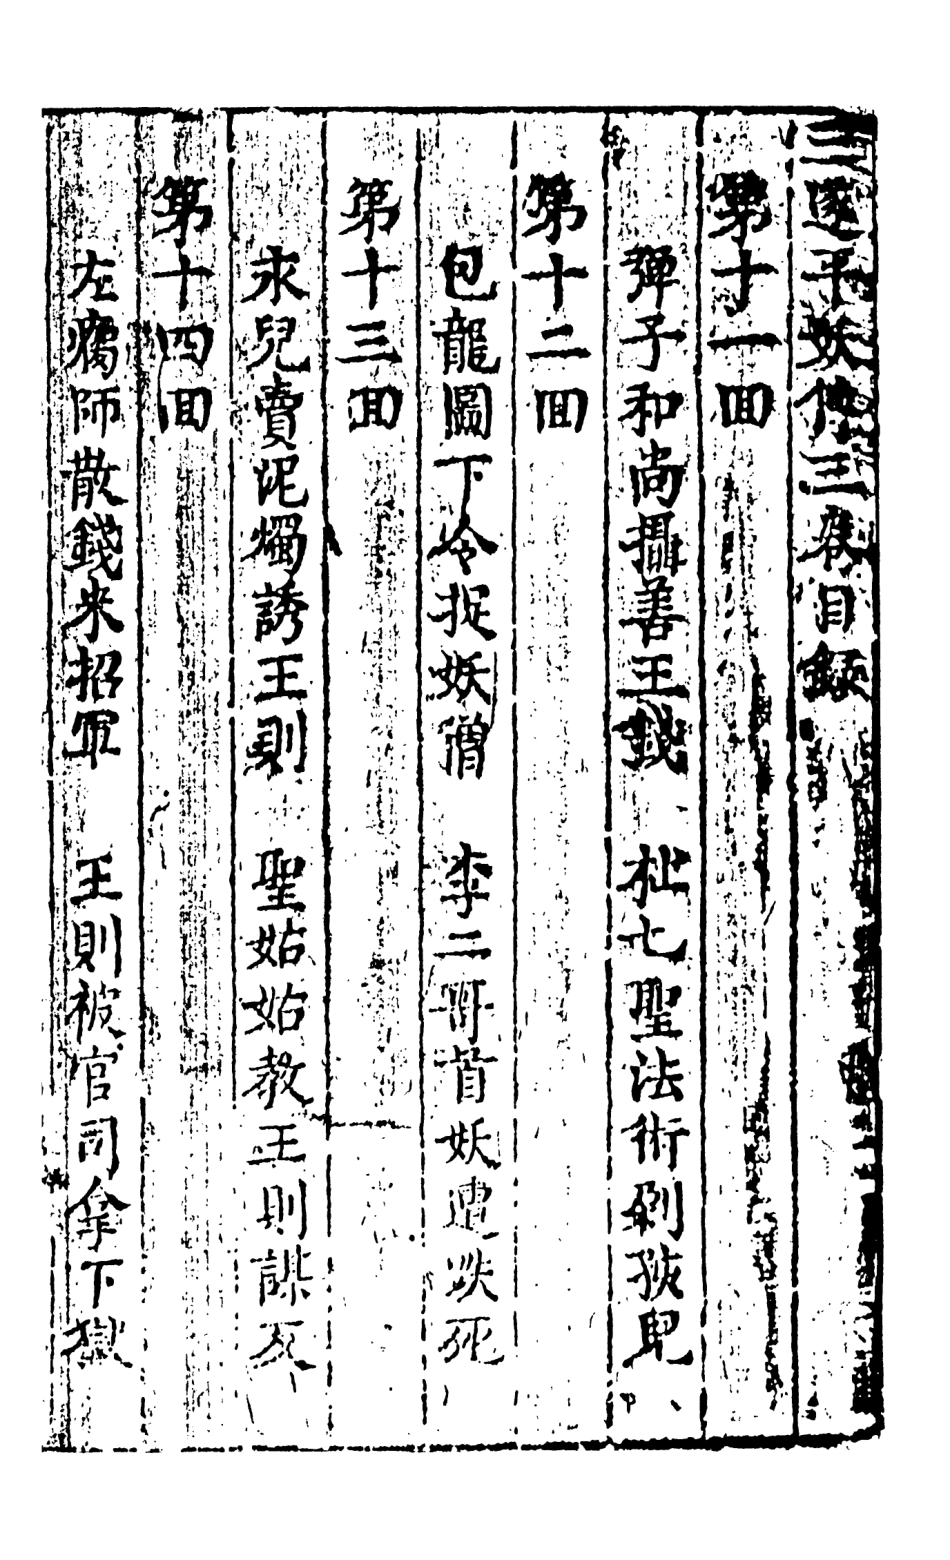 三遂平妖傳三卷目錄
第十一回
彈子和尚攝善王錢　杜七聖法術剁孩兒
第十二回
包龍圖下令捉妖僧　李二哥首妖遭跌死
第十三回
永兒賣泥燭誘王則　聖姑姑教王則謀反
第十四回
左瘸師散錢米招軍　王則被官司拿下獄